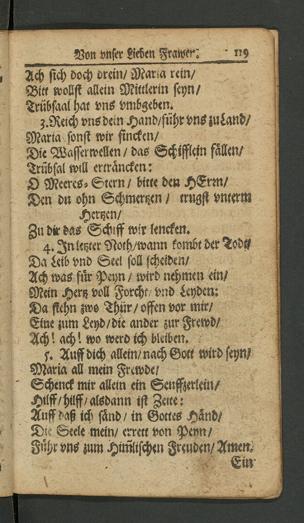 Von vnser Lieben Frawen. 119
Ach sich doch drein/ Maria rein/
Bitt wollst allein Mittlerin seyn/
Trübsaal hat vns vmbgeben.
3. Reich vns dein Hand/ führ vns zu Land/
Maria sonst wir sincken/
Die Wasserwellen/ das Schifflein fällen/
Trübsal will ertråncken:
O Meeres-Stern/ bitte den HErrn/
Den du ohn Schmertzen/ trugst vnterm
Hertzen/
Zu dir das Schiff wir lencken.
4. In letzter Noth/ wann kombt der Todt/
Da Leib vnd Seel soll scheiden/
Ach was für Peyn/ wird nehmen ein/
Mein Hertz voll Forcht/ vnd Leyden:
Da stehn zwo Thür/ offen vor mir/
Eine zum Leyd/ die ander zur Frewd/
Ach! ach! wo werd ich bleiben.
5. Auff dich allein/ nach Gott wird seyn/
Maria all mein Frewde/
Schenck mir allein ein Seuffzerlein/
Hilff/ hilff/ alsdann ist Zeite:
Auff daß ich sänd/ in Gottes Händ/
Die Seele mein/ errett von Peyn/
Führ vns zum Him̃lischen Freuden/ Amen.
Ein